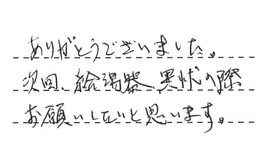 ありがとうございました。
次回、給湯器異状の際
お願いしたいと思います。